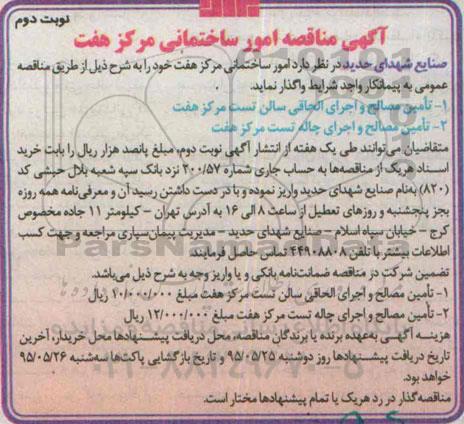 نوبت دوم
آگهی مناقصه امور ساختمانی مرکز هفت
صنایع شهدای حدید در نظر دارد امور ساختمانی مرکز هفت خود را به شرح ذیل از طریق مناقصه
عمومی به پیمانکار واجد شرایط واگذار نماید.
۱- تأمین مصالح و اجرای الحاقی سالن تست مرکز هفت
۲- تأمین مصالح و اجرای چاله تست مرکز هفت
متقاضیان می‌توانند طی یک هفته از انتشار آگهی نوبت دوم، مبلغ پانصد هزار ریال را بابت خرید
اسناد هریک از مناقصه‌ها به حساب جاری شماره ۲۰۰/۵۷ نزد بانک سپه شعبه بلال حبشی کد
(۸۲۰) به‌نام صنایع شهدای حدید واریز نموده و با در دست داشتن رسید آن و معرفی‌نامه همه روزه
بجز پنجشنبه و روزهای تعطیل از ساعت ۸ الی ۱۶ به آدرس تهران - کیلومتر ۱۱ جاده مخصوص
کرج - خیابان سپاه اسلام - صنایع شهدای حدید - مدیریت پیمان‌سپاری مراجعه و جهت کسب
اطلاعات بیشتر با تلفن ۴۴۹۰۸۸۰۸ تماس حاصل فرمایند.
تضمین شرکت در مناقصه ضمانت‌نامه بانکی و یا واریز وجه به شرح ذیل می‌باشد.
۱- تأمین مصالح و اجرای الحاقی سالن تست مرکز هفت مبلغ ۴۰/۰۰۰/۰۰۰ ریال
۲- تأمین مصالح و اجرای چاله تست مرکز هفت مبلغ ۱۲/۰۰۰/۰۰۰ ریال
هزینه آگهی به‌عهده برنده یا برندگان مناقصه، محل دریافت پیشنهادها محل خریدار، آخرین
تاریخ دریافت پیشنهادها روز دوشنبه ۹۵/۰۵/۲۵ و تاریخ بازگشایی پاکت‌ها سه‌شنبه ۹۵/۰۵/۲۶
خواهد بود.
مناقصه‌گذار در رد هریک یا تمام پیشنهادها مختار است.